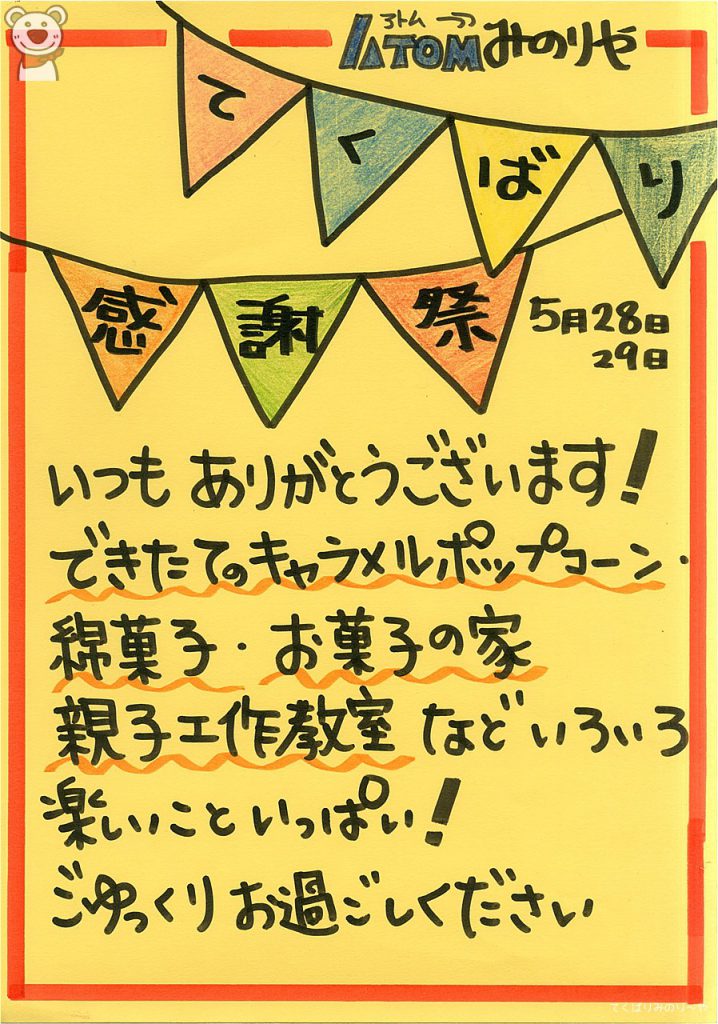 アトム
ATOMみのりや
てくばり
感謝祭
5月28日
29日
いつもありがとうございます!
できたてのキャラメルポップコーン・
綿菓子・お菓子の家
親子工作教室などいろいろ
楽しいこといっぱい!
ごゆっくりお過ごしください
てくばりみのり〜や